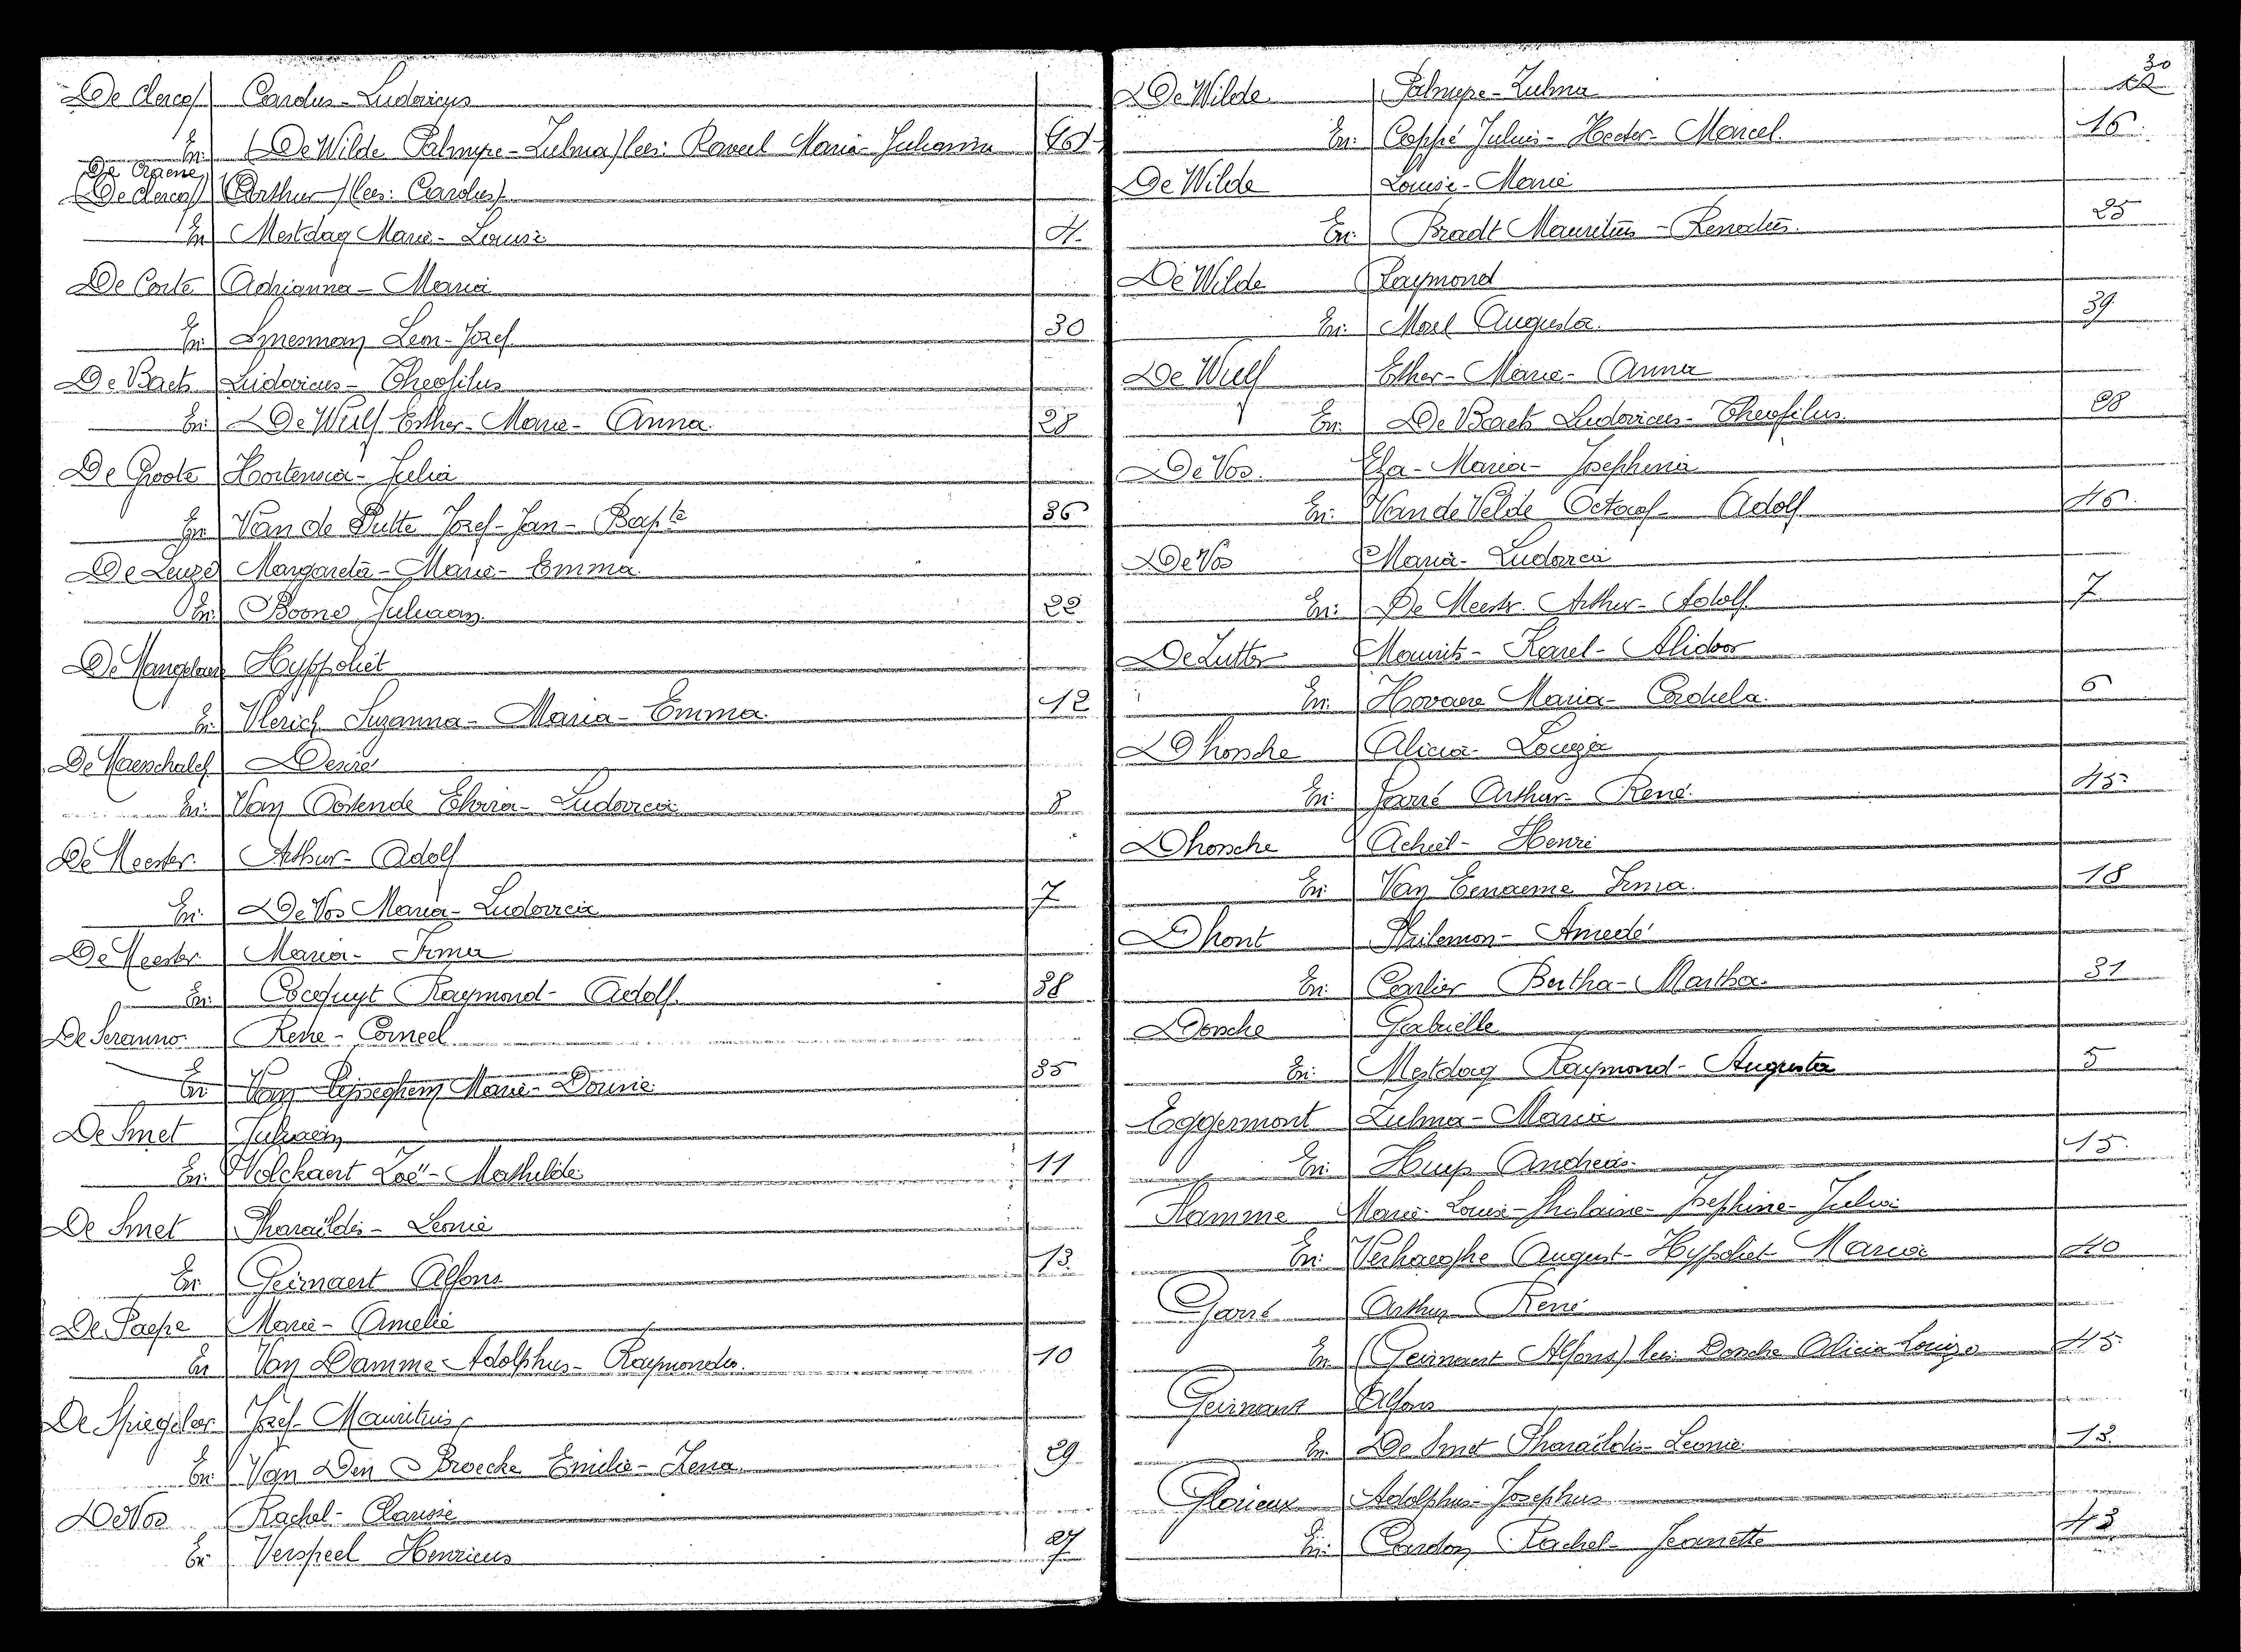 De Clercq Carolus - Ludovicus
En: (De Wilde Palmyre - Zulma) lees: Raveel Maria - Julianna
De Craene
(De Clercq) (Arthur) (lees: Carolus)
En Mestdag Marie - Louise 4.
De Corte Adrianna - Maria
En: Smesman Leon - Jozef 30
De Baets Ludovicus - Theofilus
En: De Wulf Esther - Marie - Anna. 28
De Groote Hortensia - Julia
En: Van de Putte Jozef - Jan - Bapte 36
De Leuze Margareta - Marie - Emma.
En: Boone Juliaan. 22
De Mangelaere Hyppoliet
En: Vlerick Suzanna - Maria - Emma. 12
De Maerschalck Desiré
En: Van Oostende Elvira - Ludovica 8
De Meester. Arthur - Adolf
En: De Vos Maria - Ludovica 7
De Meester. Maria - Irma
En: Cocquyt Raymond - Adolf. 38
De Seranno. Rene - Corneel
En: Van Pijseghem Marie - Dounie 35
De Smet Juliaan
En: Volckaert Zoë - Mathilde 11
De Smet Pharaïldis - Leonie
En: Geirnaert Alfons 13.
De Paepe Marie - Amelie
En Van Damme Adolphus - Raymondus. 10
De Spiegeleer Jozef - Mauritius
En: Van Den Broecke Emilie - Zena. 29
De Vos Rachel - Clarisse
En: Verspeel Henricus 27
30
De Wilde Palmyre - Zulma
En: Coppé Julius - Hector - Marcel. 16.
De Wilde Louise - Marie
En: Bradt Mauritius - Renatus. 25
De Wilde Raymond
En: Morel Augusta. 39.
De Wulf Esther - Marie - Anna
En: De Baets Ludovicus - Theofilus. 28
De Vos. Elza - Maria - Josephina
En: Van de Velde Octaaf - Adolf 46.
De Vos Maria - Ludovica
En: De Meester. Arthur - Adolf 7
De Zutter Maurits - Karel - Alidoor
En: Hovaere Maria - Cordula. 6
D'hossche Alicia - Louiza
En: Garré Arthur - René. 45
Dhossche Achiel - Henri
En: Van Eenaeme Irma. 18
Dhont Philemon - Amedé
En: Carlier Bertha - Martha. 31
Dossche Gabrielle
En: Mestdag Raymond - Augusta 5
Eggermont Zulma - Maria
En: Huys Andreas. 15.
Flamme Marie - Louise - Ghislaine - Josephine - Julia
En: Verhaeghe August - Hyppoliet - Maria 40
Garré Arthur René
En (Geirnaert Alfons) lees: Dossche Alicia Louiza 45
Geirnaert Alfons
En: De Smet Pharaïldis - Leonie. 13.
Glorieux Adolphus - Josephus
En: Cardon Rachel - Jeanette 43